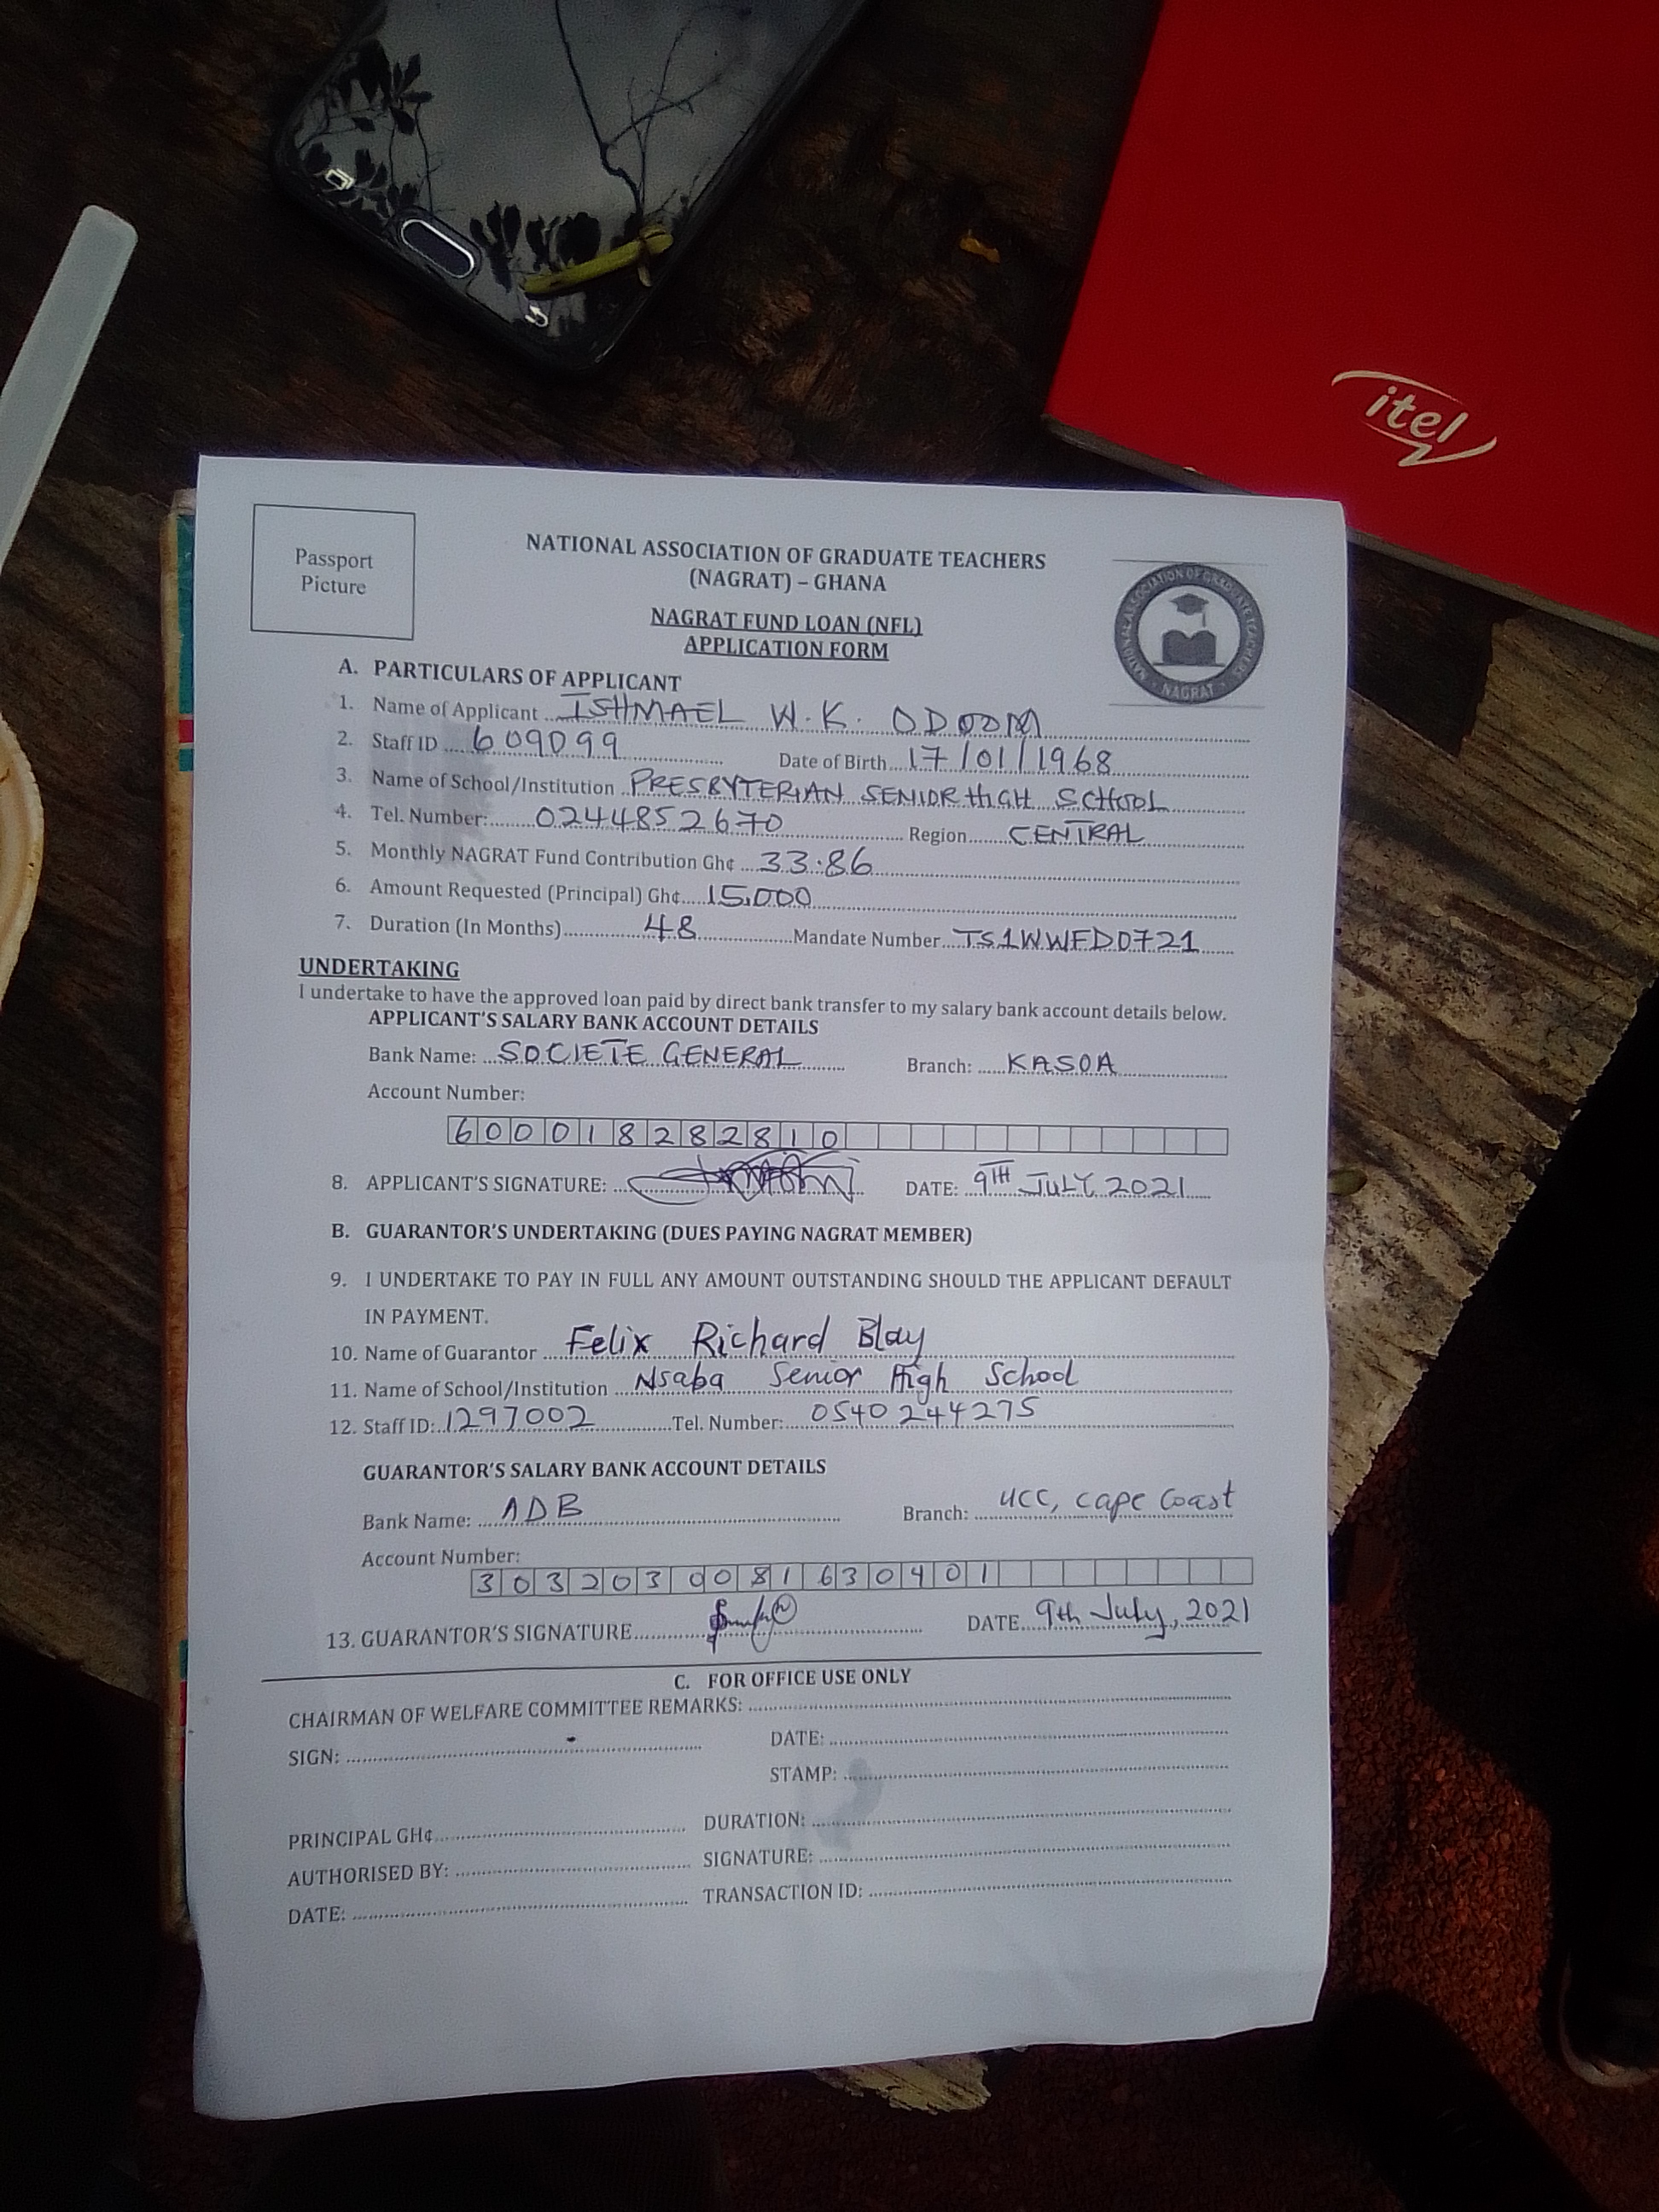 itel
Passport
Picture
NATIONAL ASSOCIATION OF GRADUATE TEACHERS
(NAGRAT) – GHANA
NAGRAT FUND LOAN (NFL)
APPLICATION FORM
NATIONAL ASSOCIATION OF GRADUATE TEACHERS
NAGRAT
A. PARTICULARS OF APPLICANT
1. Name of Applicant ISHMAEL W.K. ODOOM
2. Staff ID 609099 Date of Birth 17/01/1968
3. Name of School/Institution PRESBYTERIAN SENIOR HIGH SCHOOL
4. Tel. Number: 0244852670 Region CENTRAL
5. Monthly NAGRAT Fund Contribution Gh¢ 33.86
6. Amount Requested (Principal) Gh¢ 15,000
7. Duration (In Months) 48 Mandate Number TS1WWFD0721
UNDERTAKING
I undertake to have the approved loan paid by direct bank transfer to my salary bank account details below.
APPLICANT'S SALARY BANK ACCOUNT DETAILS
Bank Name: SOCIETE GENERAL Branch: KASOA
Account Number:
600018282810
8. APPLICANT'S SIGNATURE: DATE: 9TH JULY, 2021
B. GUARANTOR'S UNDERTAKING (DUES PAYING NAGRAT MEMBER)
9. I UNDERTAKE TO PAY IN FULL ANY AMOUNT OUTSTANDING SHOULD THE APPLICANT DEFAULT
IN PAYMENT.
10. Name of Guarantor Felix Richard Blay
11. Name of School/Institution Nsaba Senior High School
12. Staff ID: 1297002 Tel. Number: 0540244275
GUARANTOR'S SALARY BANK ACCOUNT DETAILS
Bank Name: ADB Branch: UCC, Cape Coast
Account Number:
3032030081630401
13. GUARANTOR'S SIGNATURE DATE 9th July, 2021
C. FOR OFFICE USE ONLY
CHAIRMAN OF WELFARE COMMITTEE REMARKS:
SIGN: DATE:
STAMP:
PRINCIPAL GH¢ DURATION:
AUTHORISED BY: SIGNATURE:
DATE: TRANSACTION ID: